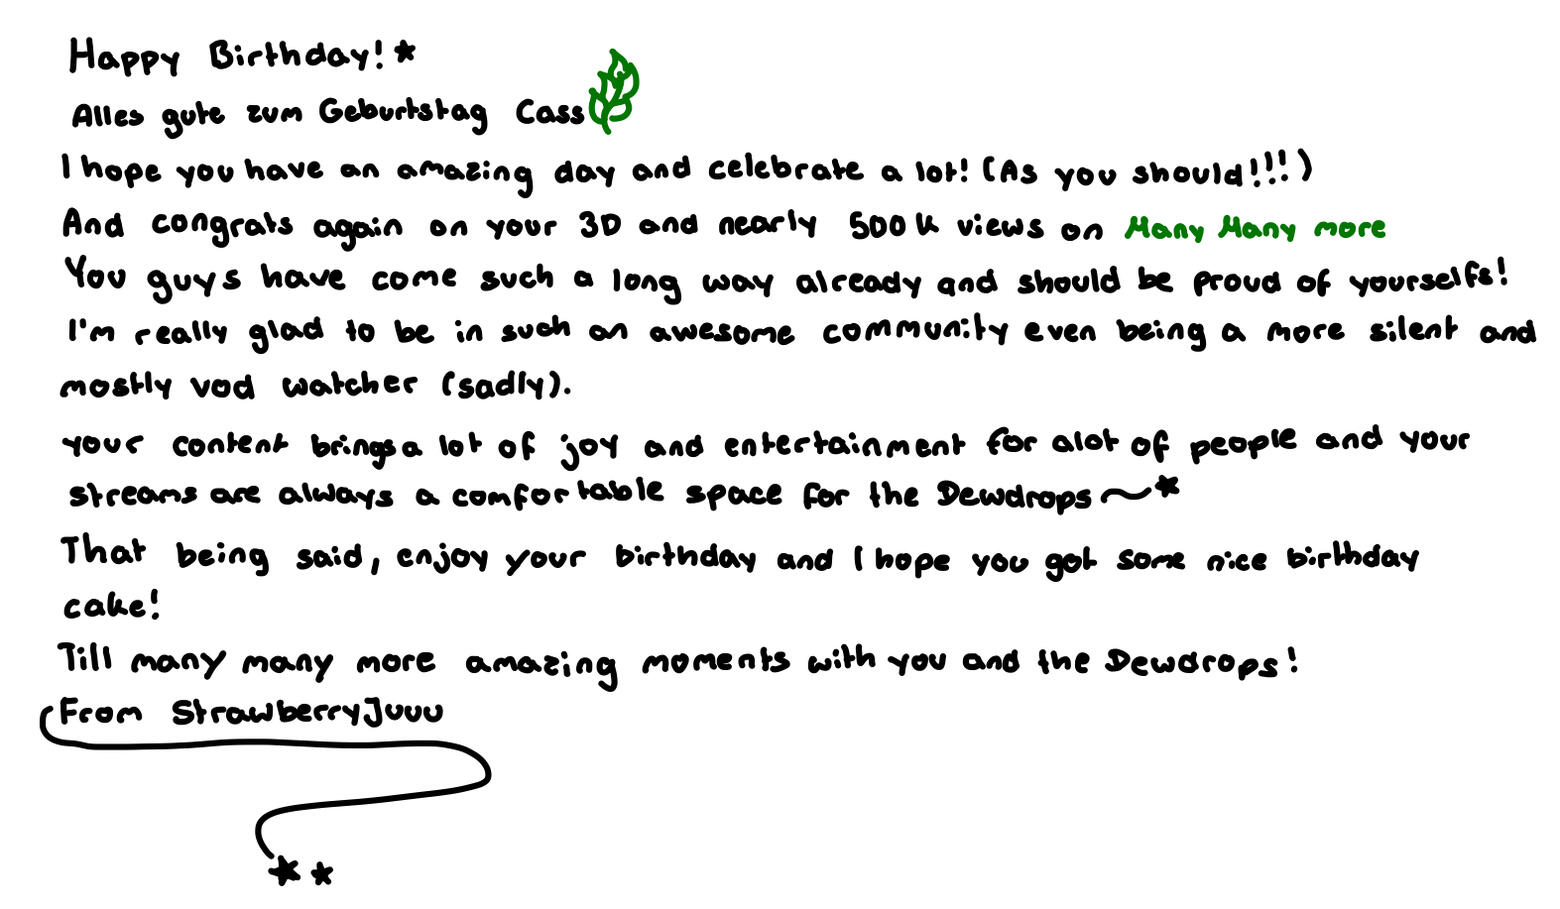 Happy Birthday!*
Alles gute zum Geburtstag Cass
I hope you have an amazing day and celebrate a lot! (As you should!!!)
And congrats again on your 3D and nearly 500k views on Many Many more
You guys have come such a long way already and should be proud of yourselfs!
I'm really glad to be in such an awesome community even being a more silent and
mostly vod watcher (sadly).
your content brings a lot of joy and entertainment for alot of people and your
streams are always a comfortable space for the Dewdrops~*
That being said, enjoy your birthday and I hope you got some nice birthday
cake!
Till many many more amazing moments with you and the Dewdrops!
From StrawberryJuuu